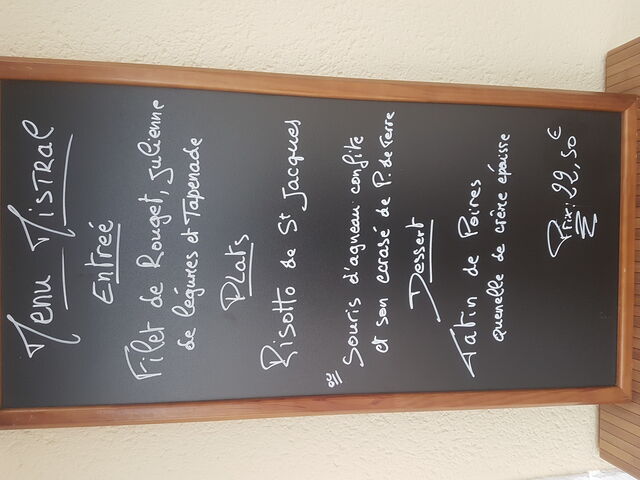 Menu Mistral
Entreé
Filet de Rouget, julienne
de légumes et Tapenade
Plats
Risotto de St Jacques
ou Souris d'agneau confite
et son ecrasé de P. de Terre
Dessert
Tatin de Poires
quenelle de crème épaisse
Prix: 22,50€